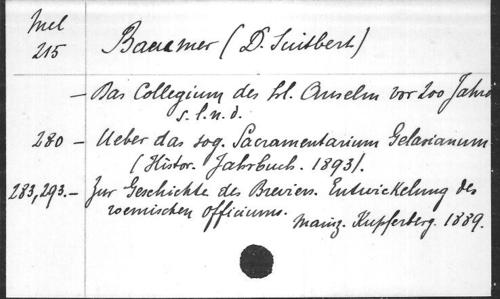 Mel
215
Baeumer (D. Suitbert)
— Das Collegium des hl. Anselm vor 200 Jahre
s. l. n. d.
280 — Ueber das sog. Sacramentarium Gelasianum
(Histor. Jahrbuch. 1893).
283, 293. — Zur Geschichte des Breviers. Entwickelung des
roemischen Officiums.
Mainz. Kupferberg. 1889.